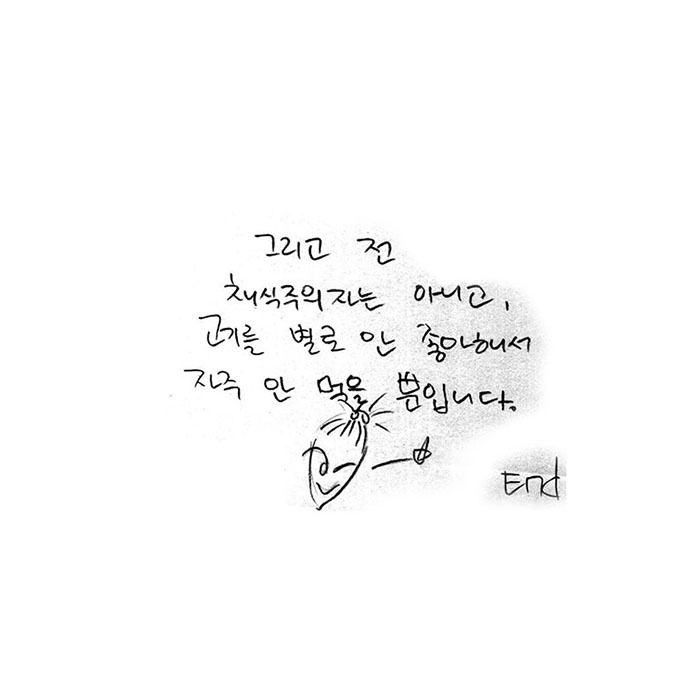 그리고 전
채식주의자는 아니고,
고기를 별로 안 좋아해서
자주 안 먹을 뿐입니다.
End